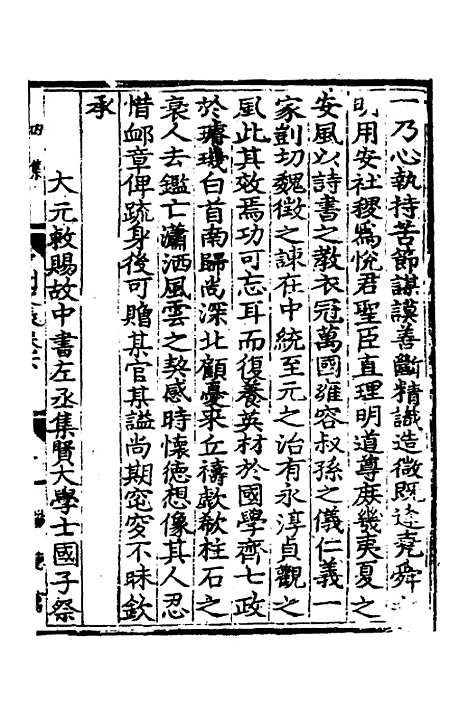 一乃心執持苦節謀謨善斷精識造微既逢堯舜
明用安社稷爲悅君聖臣直理明道尊庶幾夷夏之
安風以詩書之教衣冠萬國雍容叔孫之儀仁義一
家剴切魏徵之諫在中統至元之治有永淳貞觀之
風此其效焉功可忘耳而復養英材於國學齊七政
於璿璣白首南歸尚深北顧憂來丘禱歔欷柱石之
衰人去鑑亡瀟洒風雲之契感時懷德想像其人忍
惜卹章俾疏身後可贈某官某謚尚期窀穸不昧欽
承
大元敕賜故中書左丞集賢大學士國子祭